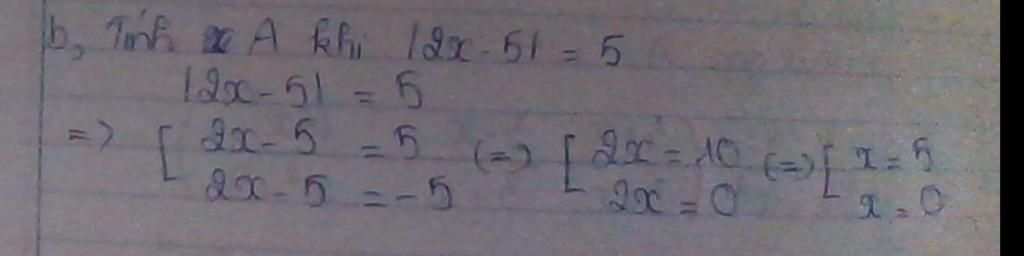 b, Tính A khi |2x - 5| = 5
|2x - 5| = 5
=> [ 2x - 5 = 5 (=) [ 2x = 10 (=) [ x = 5
2x - 5 = - 5 2x = 0 x = 0